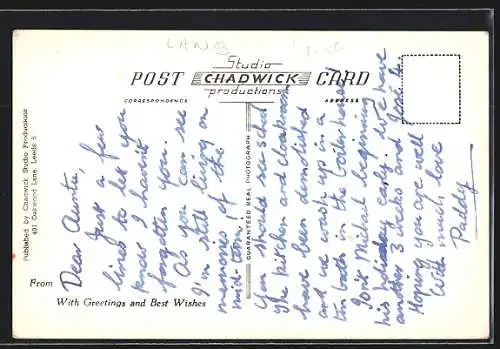 LANG
Studio
POST CHADWICK CARD
productions
CORRESPONDENCE
ADDRESS
Published by Chadwick Studio Productions
401 Oakwood Lane, Leeds 8
GUARANTEED REAL PHOTOGRAPH
Dear Aunty,
Just a few
lines to let you
know I haven't
forgotten you.
As you can see
I'm still living on
memories of the
mid-term, if
You should see school
the kitchen and cloakroom
have been demolished
and we wash up in a
tin bath in the boiler house!
Isn't Michael beginning
his holiday early. We have
another 3 weeks and
Hoping y are well
With much love
Paddy
From
With Greetings and Best Wishes